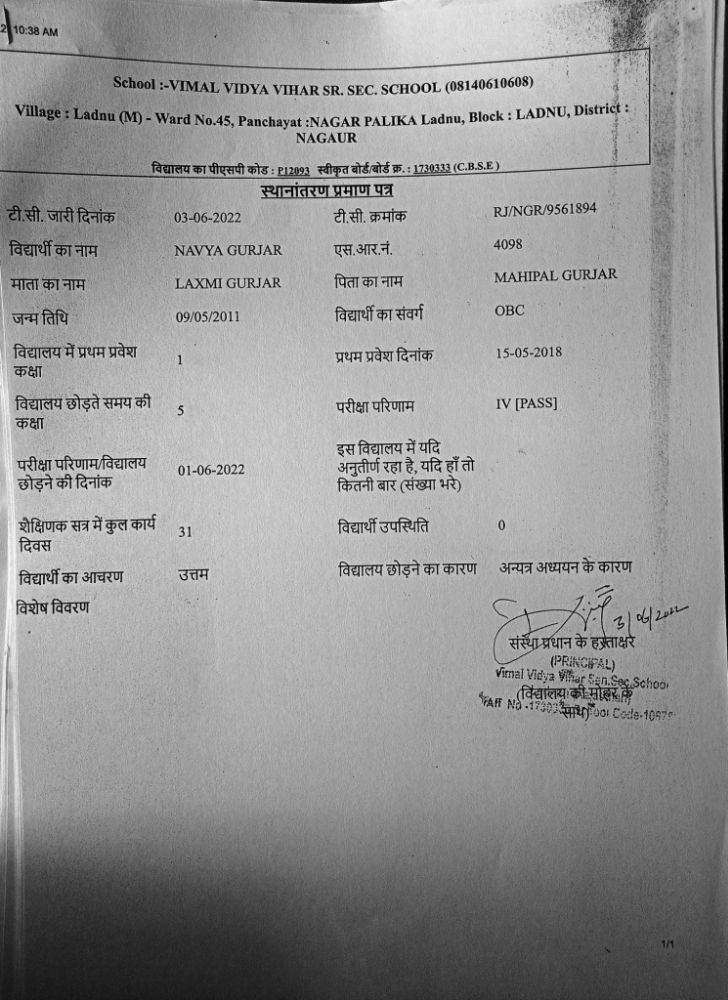 2 10:38 AM
School :-VIMAL VIDYA VIHAR SR. SEC. SCHOOL (08140610608)
Village : Ladnu (M) - Ward No.45, Panchayat :NAGAR PALIKA Ladnu, Block : LADNU, District :
NAGAUR
विद्यालय का पीएसपी कोड : P12093 स्वीकृत बोर्ड/बोर्ड क्र. : 1730333 (C.B.S.E )
स्थानांतरण प्रमाण पत्र
टी.सी. जारी दिनांक 03-06-2022 टी.सी. क्रमांक RJ/NGR/9561894
विद्यार्थी का नाम NAVYA GURJAR एस.आर.नं. 4098
माता का नाम LAXMI GURJAR पिता का नाम MAHIPAL GURJAR
जन्म तिथि 09/05/2011 विद्यार्थी का संवर्ग OBC
विद्यालय में प्रथम प्रवेश
कक्षा 1 प्रथम प्रवेश दिनांक 15-05-2018
विद्यालय छोड़ते समय की
कक्षा 5 परीक्षा परिणाम IV [PASS]
परीक्षा परिणाम/विद्यालय
छोड़ने की दिनांक 01-06-2022
इस विद्यालय में यदि
अनुतीर्ण रहा है, यदि हाँ तो
कितनी बार (संख्या भरे)
शैक्षिणक सत्र में कुल कार्य
दिवस 31 विद्यार्थी उपस्थिति 0
विद्यार्थी का आचरण उत्तम विद्यालय छोड़ने का कारण अन्यत्र अध्ययन के कारण
विशेष विवरण
3/06/2022
संस्था प्रधान के हस्ताक्षर
(PRINCIPAL)
Vimal Vidya Vihar Sen.Sec.School
(विद्यालय की मोहर के
साथ)
1/1